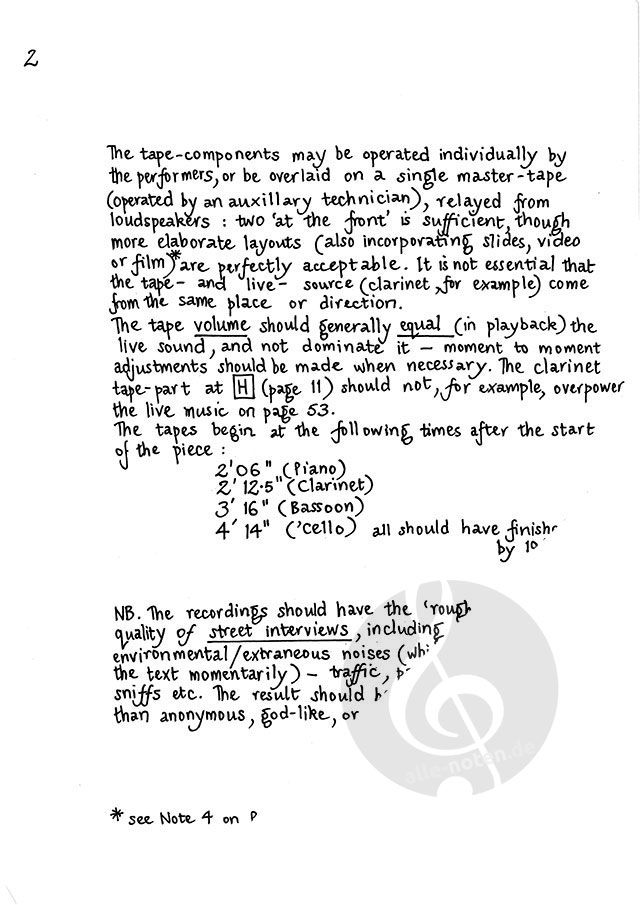 2
The tape-components may be operated individually by
the performers, or be overlaid on a single master-tape
(operated by an auxillary technician), relayed from
loudspeakers : two 'at the front' is sufficient, though
more elaborate layouts (also incorporating slides, video
or film)* are perfectly acceptable. It is not essential that
the tape- and 'live'- source (clarinet, for example) come
from the same place or direction.
The tape volume should generally equal (in playback) the
live sound, and not dominate it – moment to moment
adjustments should be made when necessary. The clarinet
tape-part at H (page 11) should not, for example, overpower
the live music on page 53.
The tapes begin at the following times after the start
of the piece :
2'06" (Piano)
2'12·5" (Clarinet)
3'16" (Bassoon)
4'14" ('cello) all should have
by 10
NB. The recordings should have the 'rough
quality of street interviews, including
environmental/extraneous noises
the text momentarily) – traffic,
sniffs etc. The result should
than anonymous, god-like, or
alle-noten.de
* see Note 4 on